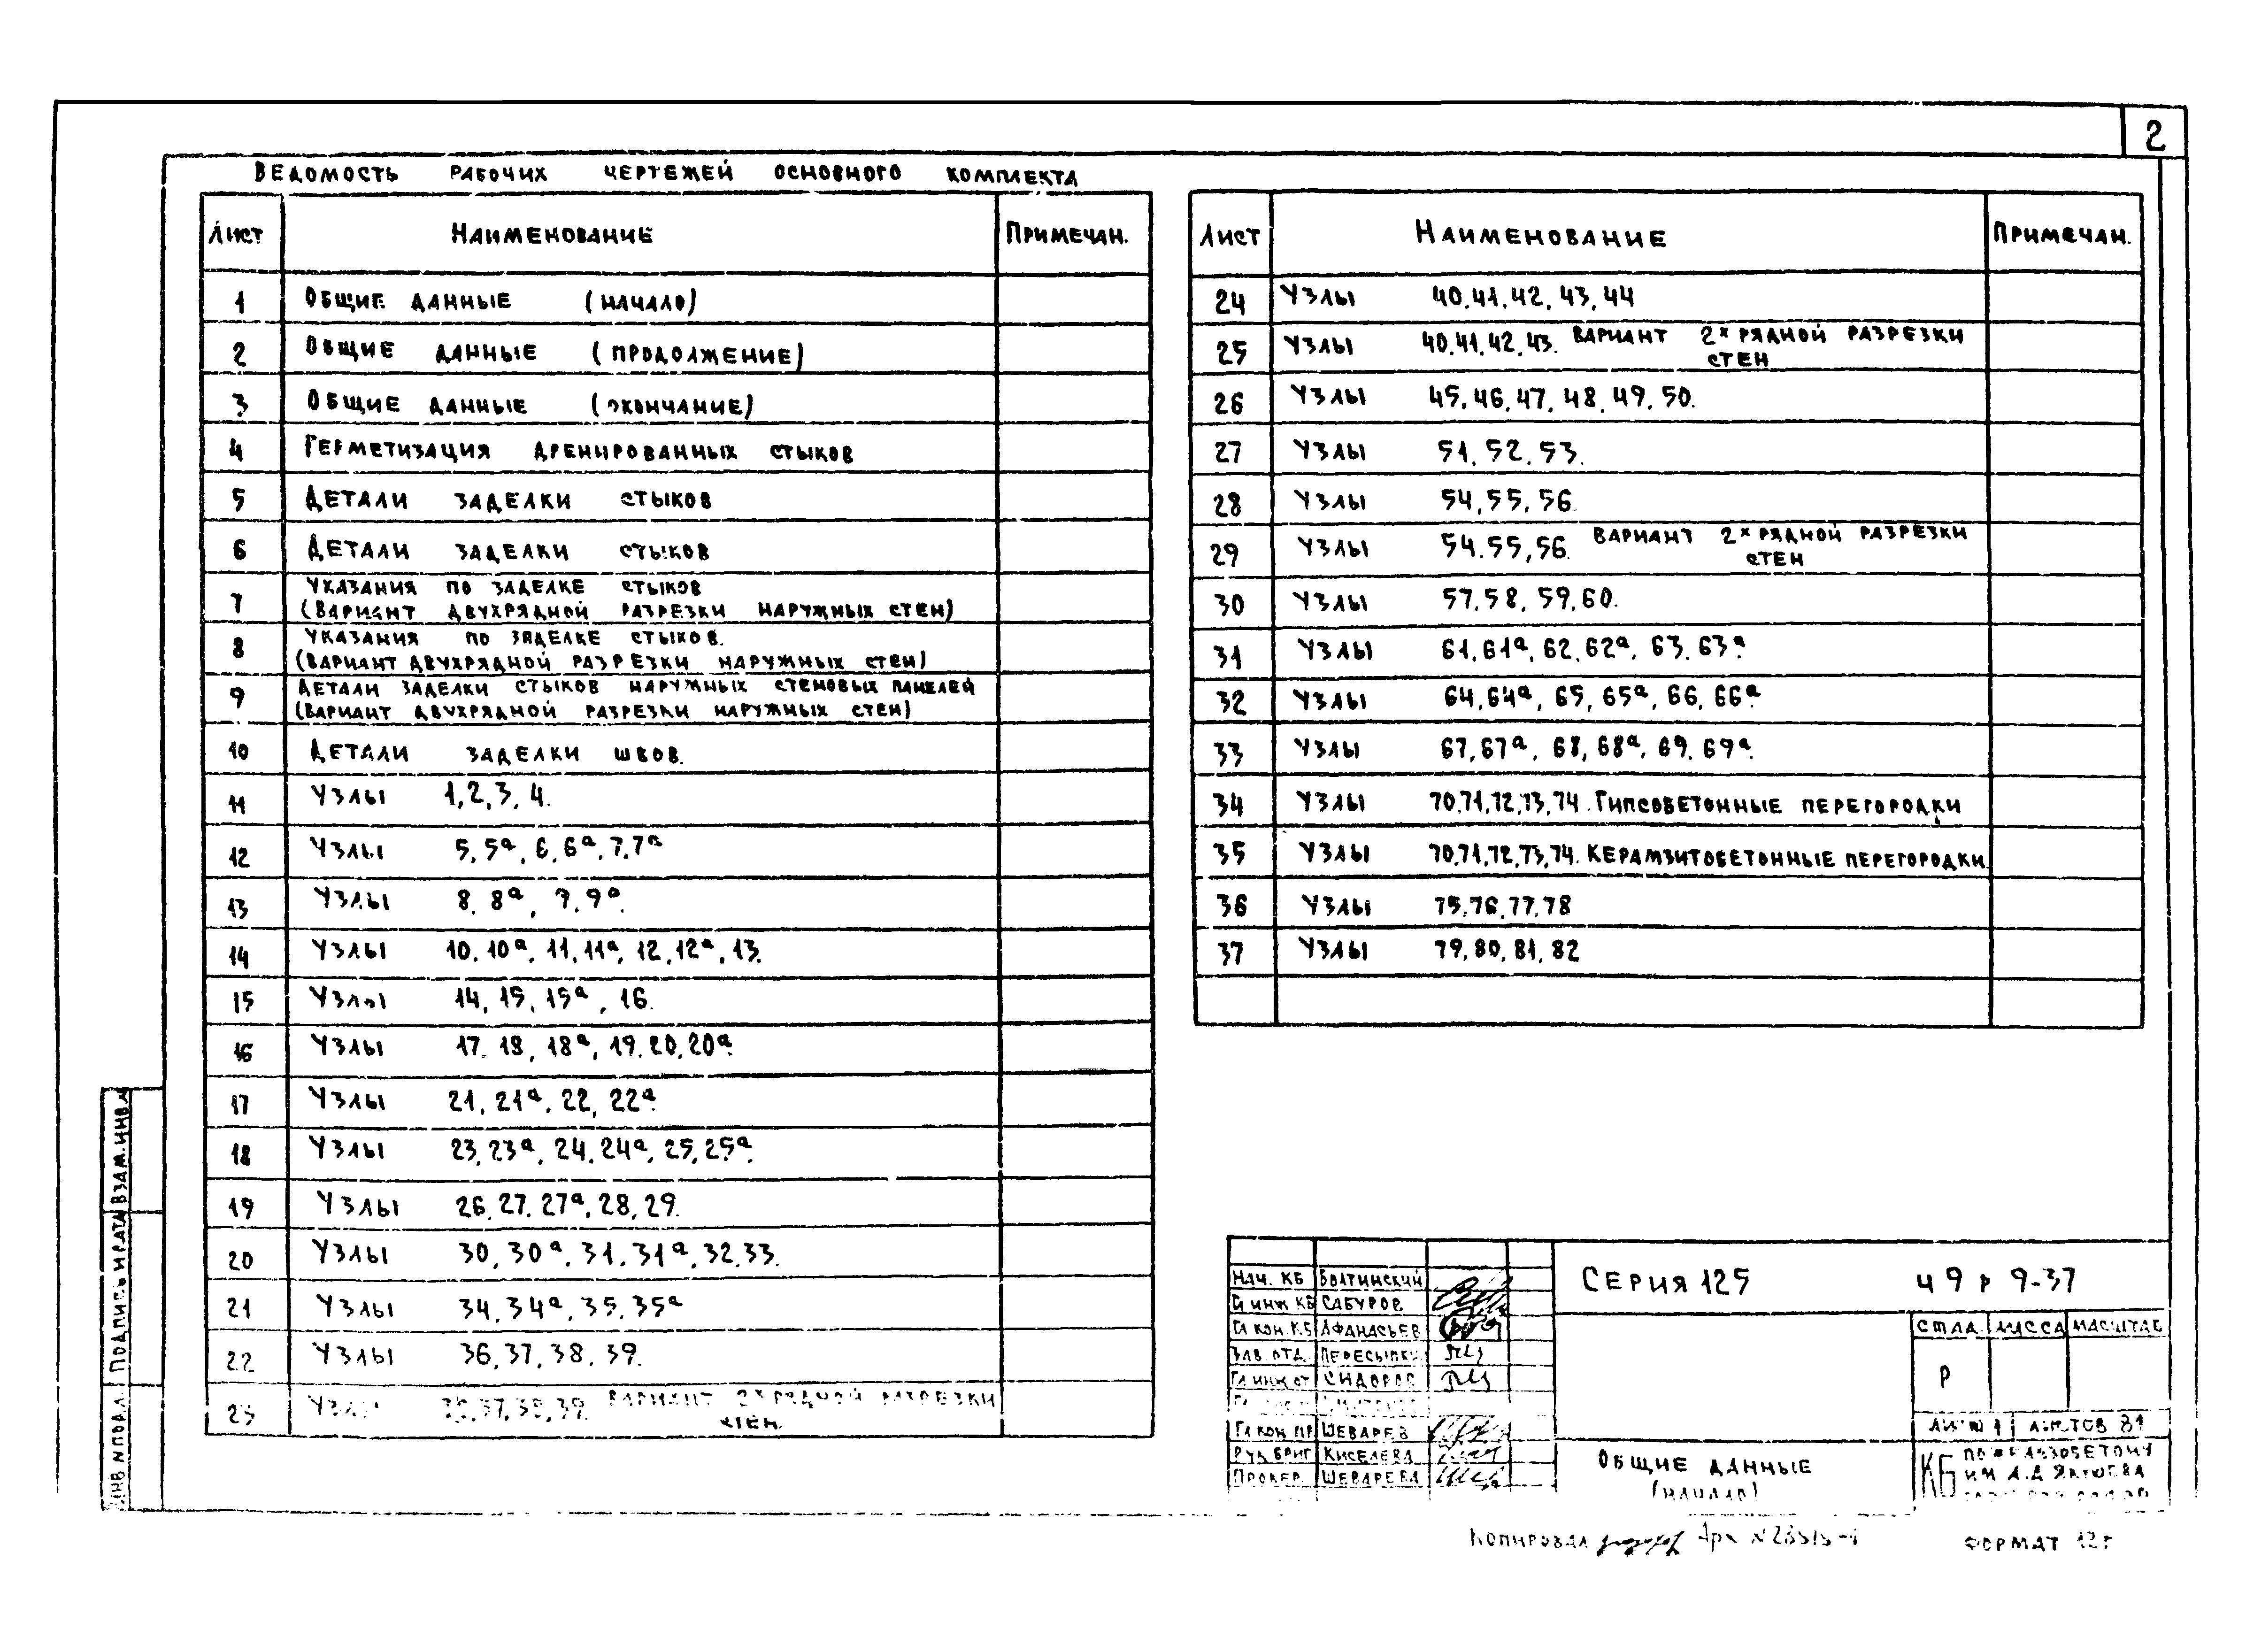 2
ВЕДОМОСТЬ РАБОЧИХ ЧЕРТЕЖЕЙ ОСНОВНОГО КОМПЛЕКТА
ЛИСТ НАИМЕНОВАНИЕ ПРИМЕЧАН.
1 ОБЩИЕ ДАННЫЕ (НАЧАЛО)
2 ОБЩИЕ ДАННЫЕ (ПРОДОЛЖЕНИЕ)
3 ОБЩИЕ ДАННЫЕ (ОКОНЧАНИЕ)
4 ГЕРМЕТИЗАЦИЯ ДРЕНИРОВАННЫХ СТЫКОВ
5 ДЕТАЛИ ЗАДЕЛКИ СТЫКОВ
6 ДЕТАЛИ ЗАДЕЛКИ СТЫКОВ
7 УКАЗАНИЯ ПО ЗАДЕЛКЕ СТЫКОВ
(ВАРИАНТ ДВУХРЯДНОЙ РАЗРЕЗКИ НАРУЖНЫХ СТЕН)
8 УКАЗАНИЯ ПО ЗАДЕЛКЕ СТЫКОВ.
(ВАРИАНТ ДВУХРЯДНОЙ РАЗРЕЗКИ НАРУЖНЫХ СТЕН)
9 ДЕТАЛИ ЗАДЕЛКИ СТЫКОВ НАРУЖНЫХ СТЕНОВЫХ ПАНЕЛЕЙ
(ВАРИАНТ ДВУХРЯДНОЙ РАЗРЕЗКИ НАРУЖНЫХ СТЕН)
10 ДЕТАЛИ ЗАДЕЛКИ ШВОВ.
11 УЗЛЫ 1,2,3,4.
12 УЗЛЫ 5,5а, 6,6а,7,7а
13 УЗЛЫ 8, 8а, 9,9а.
14 УЗЛЫ 10,10а, 11,11а, 12,12а,13.
15 УЗЛЫ 14, 15, 15а, 16.
16 УЗЛЫ 17. 18, 18а, 19.20,20а.
17 УЗЛЫ 21, 21а, 22, 22а.
18 УЗЛЫ 23,23а, 24.24а, 25,25а.
19 УЗЛЫ 26,27.27а,28,29.
20 УЗЛЫ 30,30а,31,31а,32,33.
21 УЗЛЫ 34,34а,35,35а
22 УЗЛЫ 36,37,38,39.
23 УЗЛЫ 36,37,38,39. ВАРИАНТ 2х РЯДНОЙ РАЗРЕЗКИ
СТЕН.
ЛИСТ НАИМЕНОВАНИЕ ПРИМЕЧАН.
24 УЗЛЫ 40,41,42,43,44
25 УЗЛЫ 40,41,42,43. ВАРИАНТ 2х РЯДНОЙ РАЗРЕЗКИ
СТЕН
26 УЗЛЫ 45,46,47,48,49,50.
27 УЗЛЫ 51,52,53.
28 УЗЛЫ 54,55,56.
29 УЗЛЫ 54.55,56. ВАРИАНТ 2х РЯДНОЙ РАЗРЕЗКИ
СТЕН
30 УЗЛЫ 57,58,59,60.
31 УЗЛЫ 61,61а,62,62а, 63,63а.
32 УЗЛЫ 64,64а, 65,65а,66,66а.
33 УЗЛЫ 67,67а, 68,68а,69,69а.
34 УЗЛЫ 70,71,72,73,74. ГИПСОБЕТОННЫЕ ПЕРЕГОРОДКИ
35 УЗЛЫ 70,71,72,73,74. КЕРАМЗИТОБЕТОННЫЕ ПЕРЕГОРОДКИ.
36 УЗЛЫ 75,76,77,78
37 УЗЛЫ 79,80,81,82
ВЗАМ.ИНВ.№
ПОДПИСЬ И ДАТА
ИНВ.№ПОДЛ.
НАЧ. КБ БОЛТИНСКИЙ
ГЛ ИНЖ КБ САБУРОВ
ГЛ КОН. КБ АФАНАСЬЕВ
ЗАВ. ОТД.
ГЛ ИНЖ ОТ СИДОРОВ
ГЛ КОН ПР ШЕВАРЕВ
РУК БРИГ КИСЕЛЕВА
ПРОВЕР. ШЕВАРЕВА
СЕРИЯ 125 Ч 9 р 9-37
СТАД. МАССА МАСШТАБ
Р
ЛИСТ 1 ЛИСТОВ 81
ОБЩИЕ ДАННЫЕ
(НАЧАЛО)
КБ ПО ЖЕЛЕЗОБЕТОНУ
ИМ А.А ЯКУШЕВА
КОПИРОВАЛ
ФОРМАТ 12г